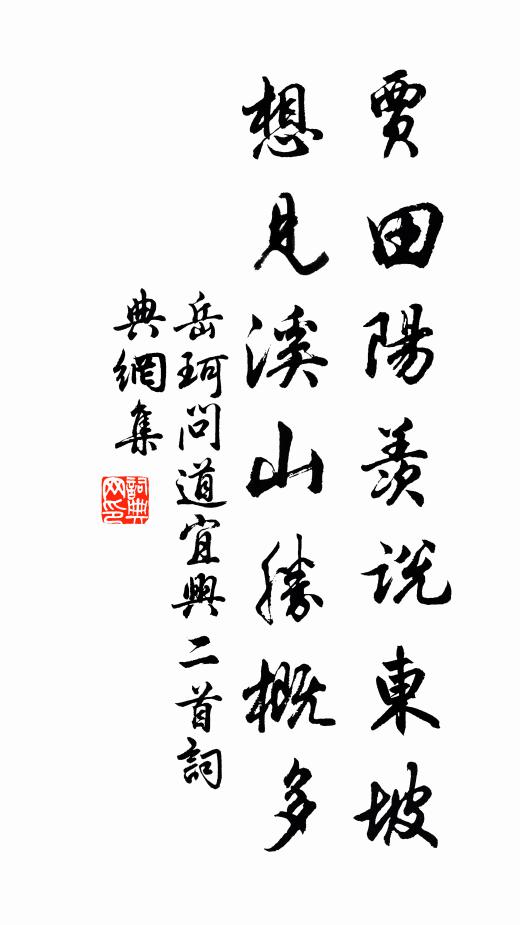 賈田陽羨說東坡
想見溪山勝概多
岳珂問道宜興二首詞
典網集
詞典網印